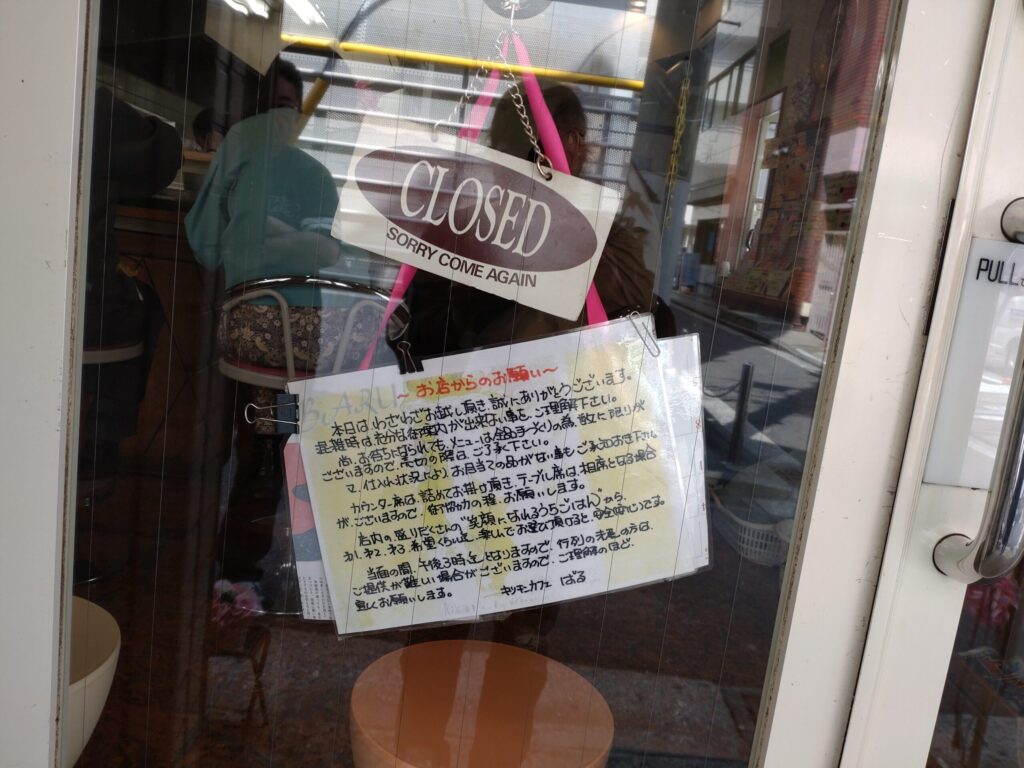 CLOSED
SORRY COME AGAIN
PULL
BARU
～お店からのお願い～
本日はわざわざお越し頂き、誠にありがとうございます。
混雑時はすぐには御案内が出来ない事をご理解下さい。
尚、お待ちになられてもメニューは全品手づくりの為、数に限りが
ございますので、売切の際はご了承下さい。
又、仕入れ状況によりお目当ての品がない事もご承知おき下さい。
カウンター席は、詰めてお掛け頂き、テーブル席は、相席となる場合
がございますので、御協力の程、お願いします。
店内の盛りだくさんの"笑顔になれるうちごはん"から、
楽しんでお選び頂けると
当面の間、午後3時迄となりますので、行列の先頭の方は、
ご提供が難しい場合がございますので、ご理解のほど、
宜しくお願いします。
キッチンカフェ ばる